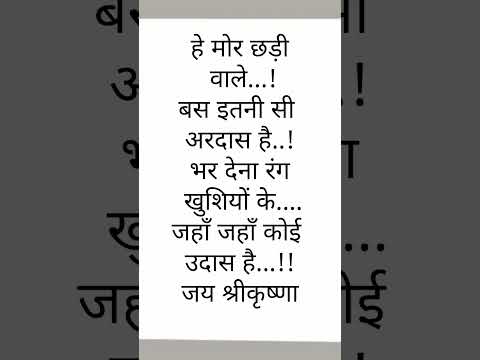 हे मोर छड़ी
वाले...!
बस इतनी सी
अरदास है..!
भर देना रंग
खुशियों के....
जहाँ जहाँ कोई
उदास है...!!
जय श्रीकृष्णा